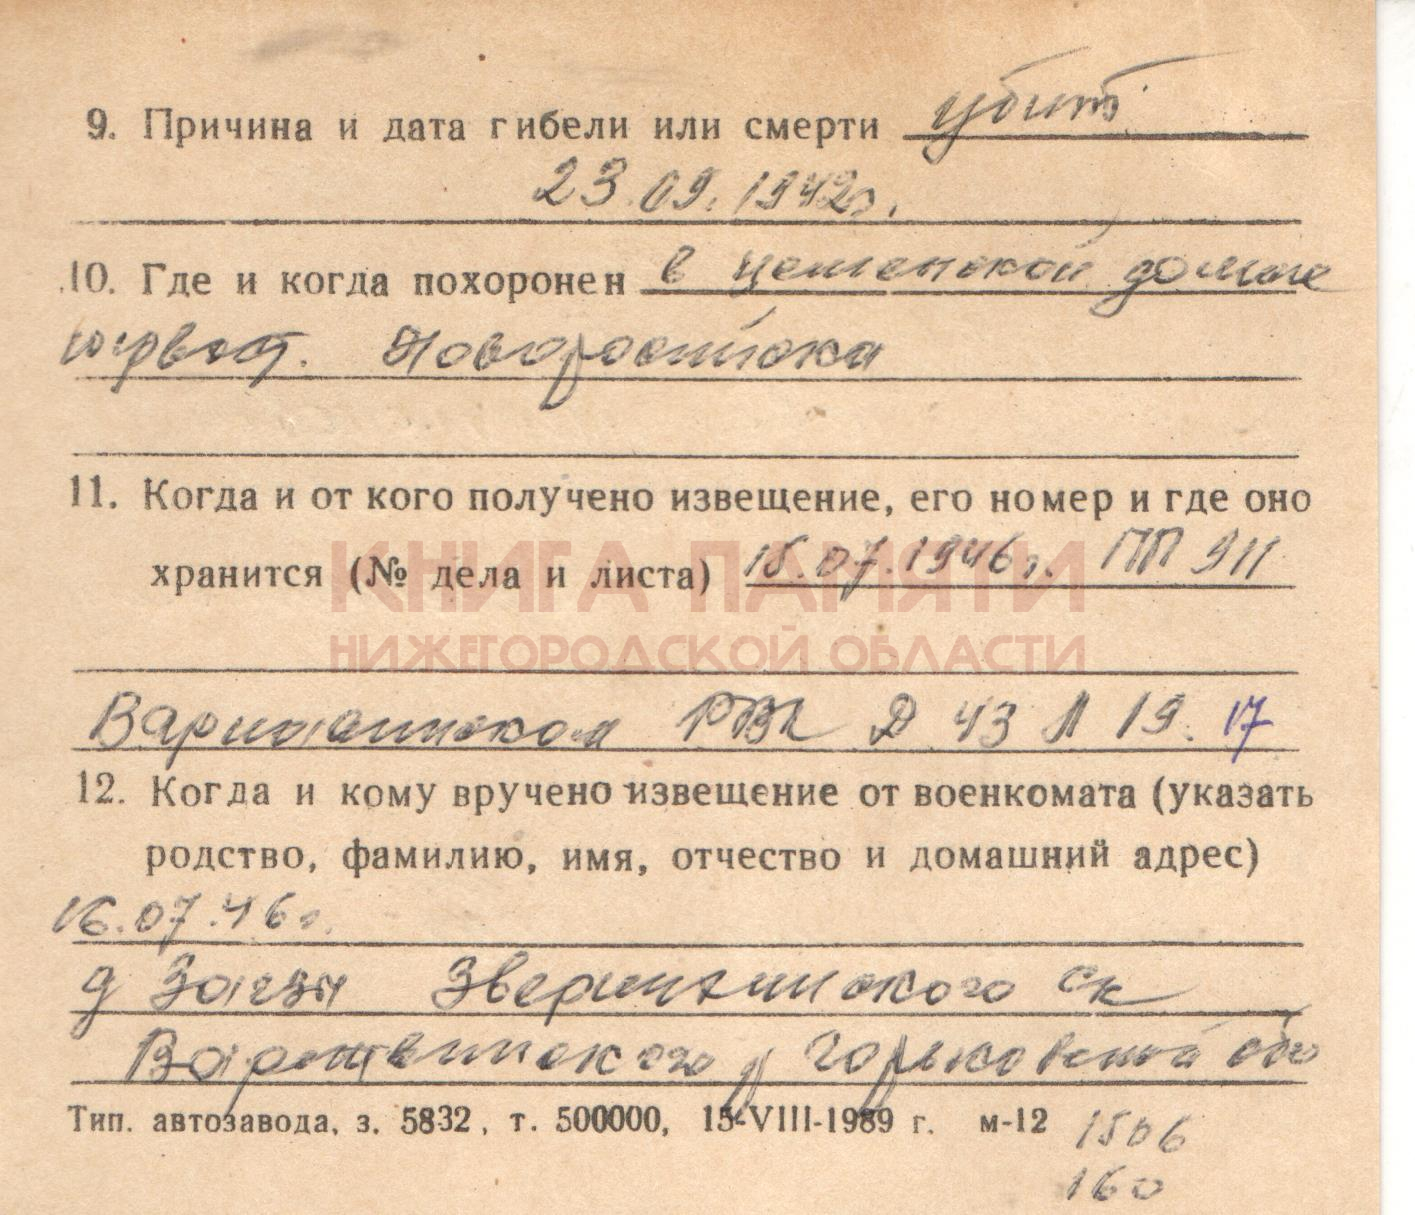 9. Причина и дата гибели или смерти убит
23.09.1942г.
10. Где и когда похоронен в цеменской долине
Новороссийска
11. Когда и от кого получено извещение, его номер и где оно
хранится (№ дела и листа) 15.07.1946г. ПП 911
КНИГА ПАМЯТИ
НИЖЕГОРОДСКОЙ ОБЛАСТИ
РВК Д 43 Л 19. 17
12. Когда и кому вручено извещение от военкомата (указать
родство, фамилию, имя, отчество и домашний адрес)
16.07.46г.
д
Горьковской обл
Тип. автозавода, з. 5832, т. 500000, 15-VIII-1989 г. м-12 1506
160